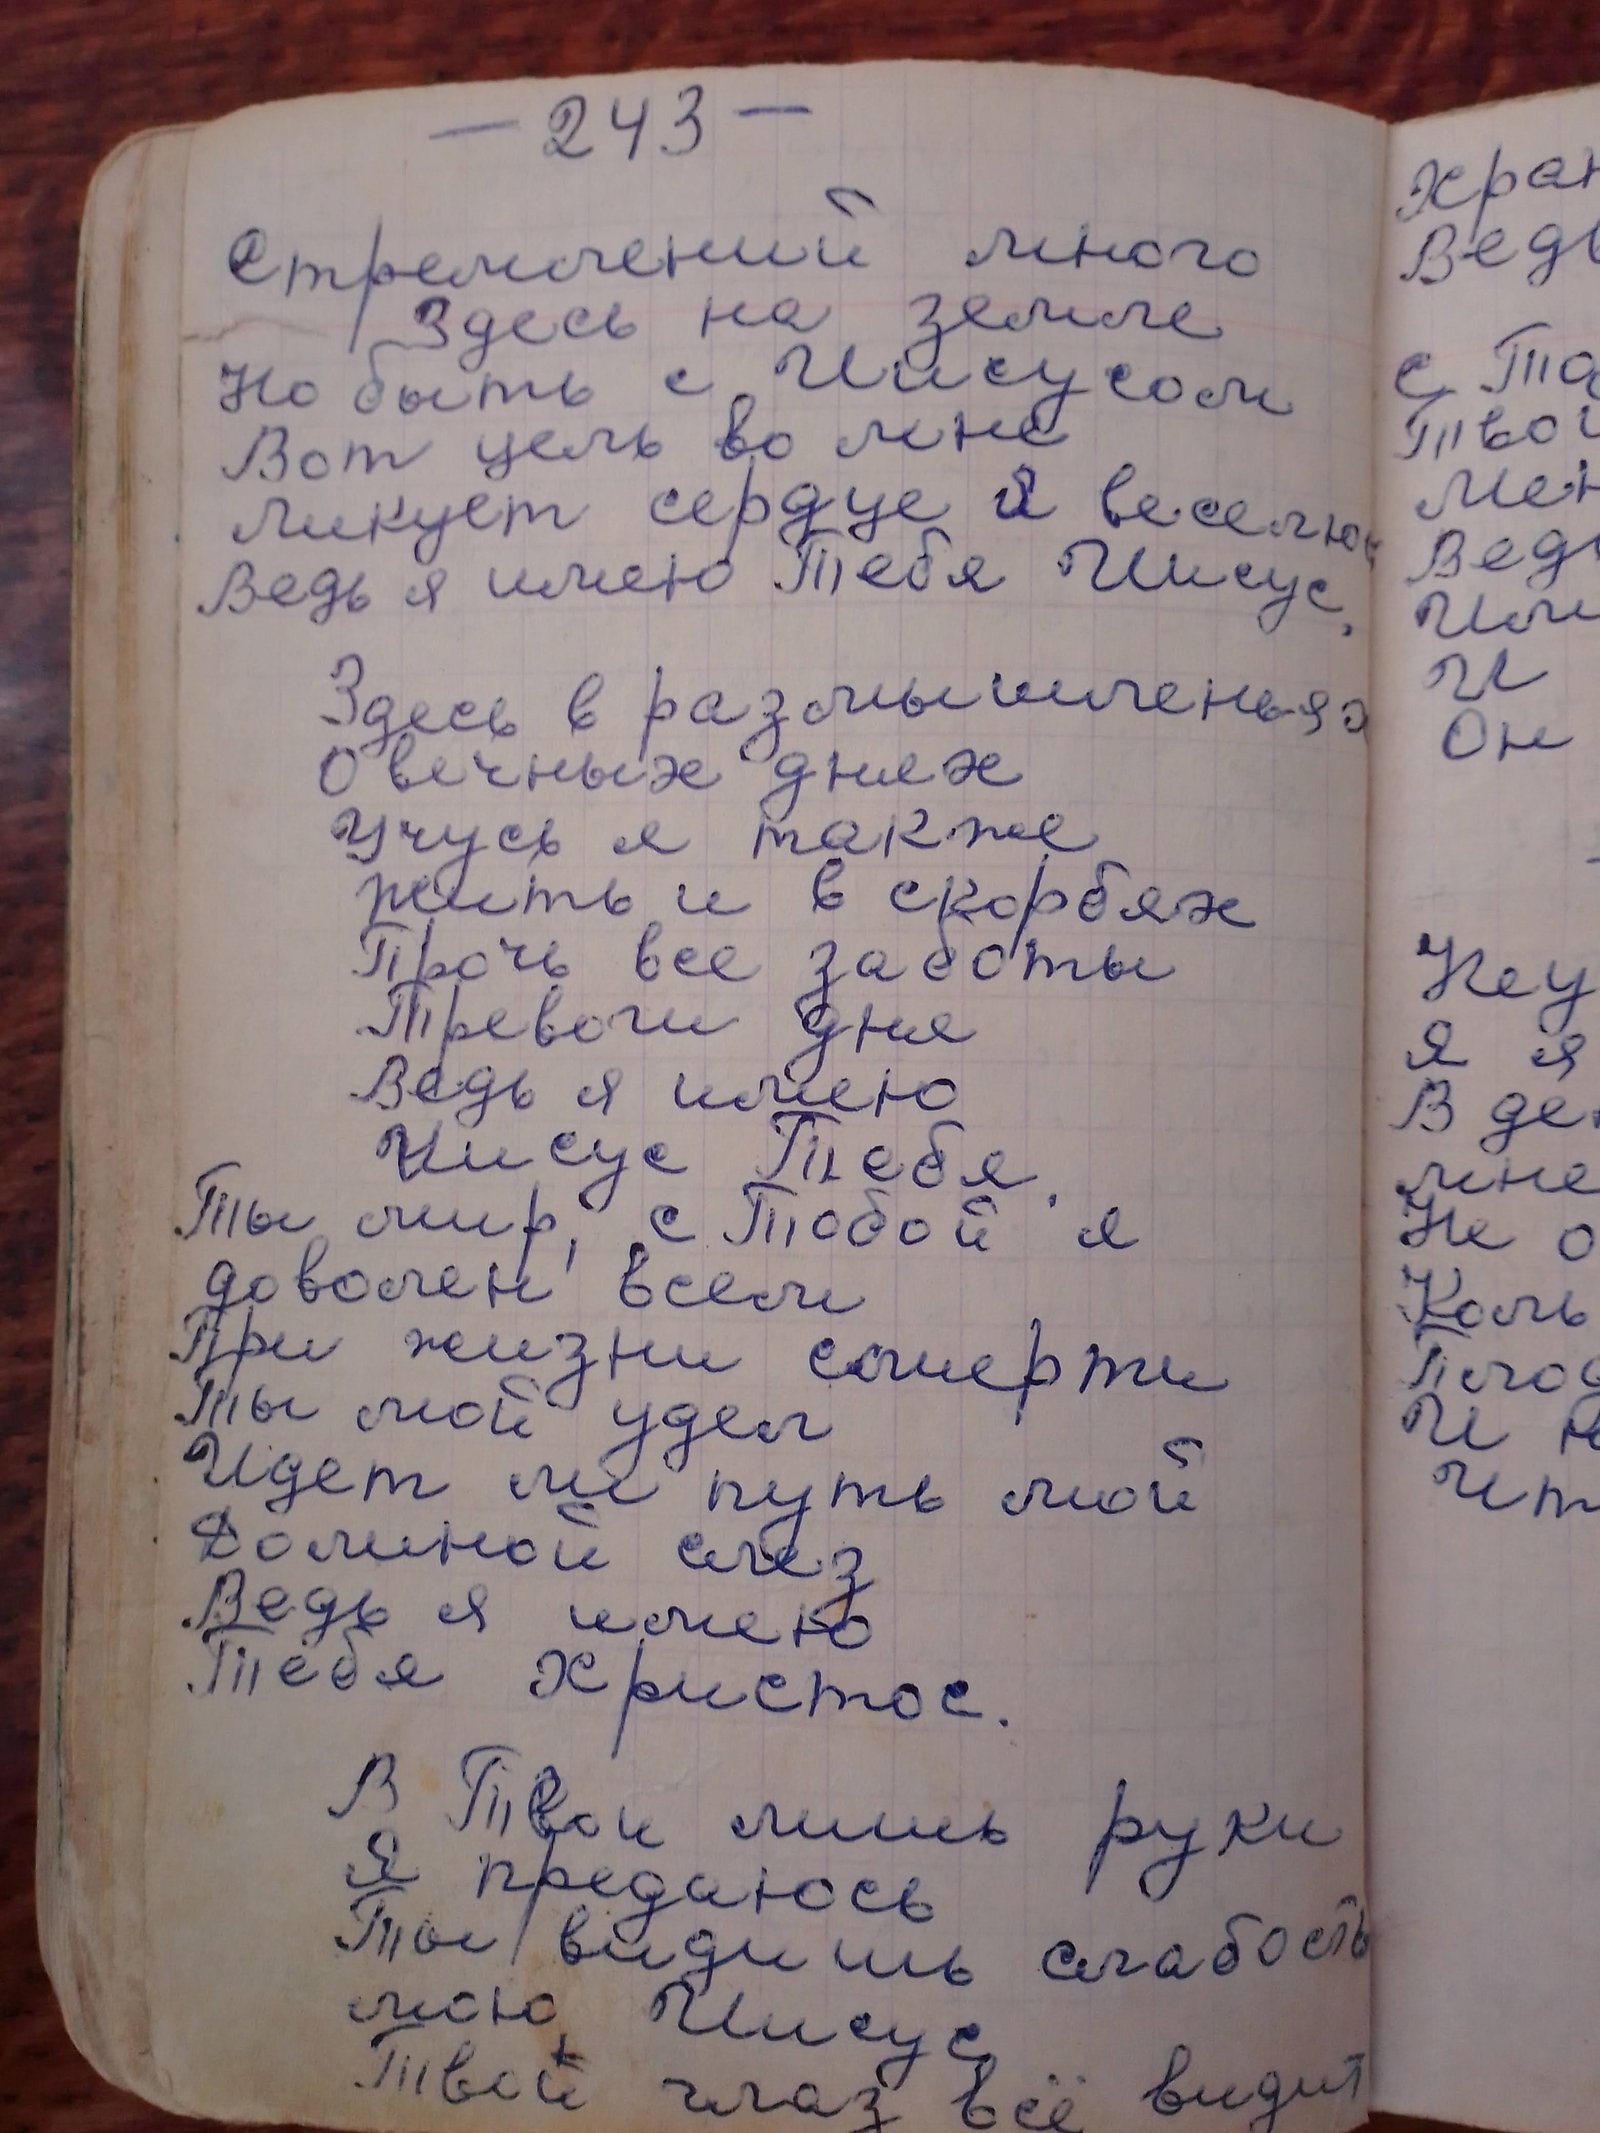 — 243 —
Стремлений много
Здесь на земле
Но быть с Иисусом
Вот цель во мне
Ликует сердце и веселюсь
Ведь я имею Тебя Иисус.
Здесь в размышленьях
О вечных днях
Учусь я также
жить и в скорбях
Прочь все заботы
Тревоги дня
Ведь я имею
Иисус Тебя.
Ты мир, с Тобой я
доволен всем
При жизни смерти
Ты мой удел
Идет ли путь мой
Долиной слез
Ведь я имею
Тебя Христос.
В Твои лишь руки
Я предаюсь
Ты видишь слабость
мою Иисус
Твой глаз всё видит
Хран
Ведь
С То
Твой
Мен
Ведь
Им
И
Он
Неу
Я я
В де
мне
Не о
Коль
Плод
И н